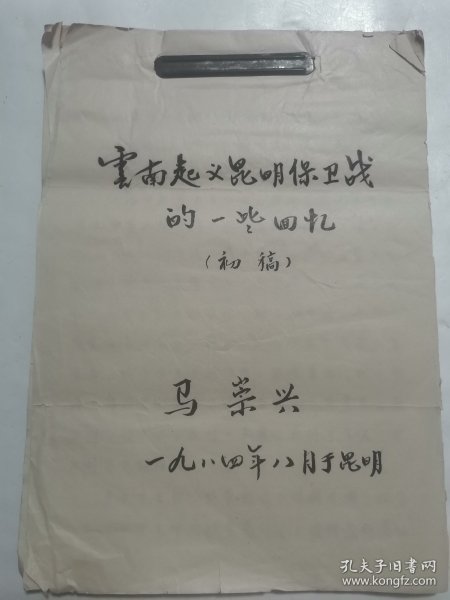 雲南起义昆明保卫战
的一些回忆
（初稿）
马崇兴
一九八四年八月于昆明
孔夫子旧书网
www.kongfz.com